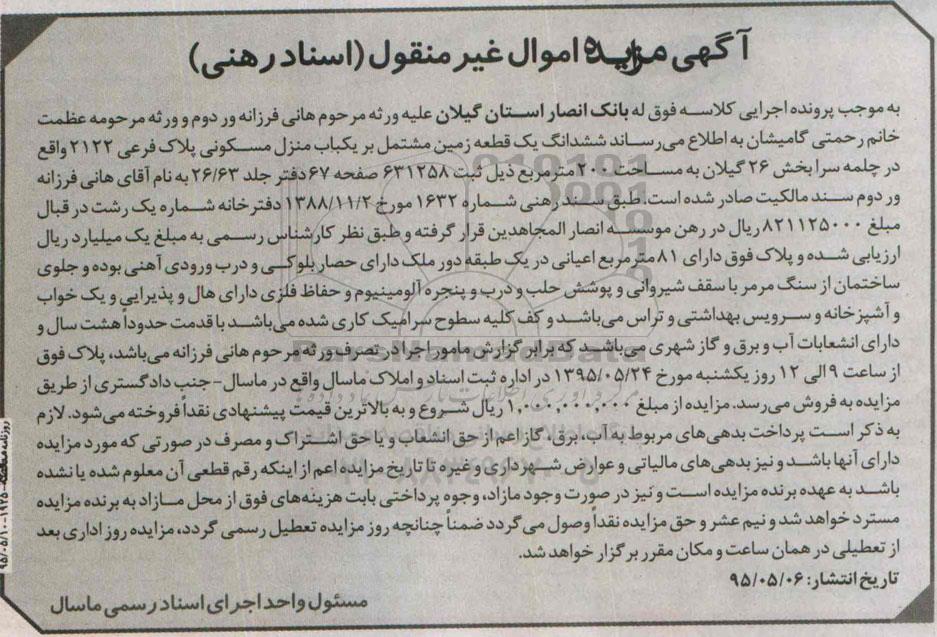 آگهی مزایده اموال غیر منقول (اسناد رهنی)
به موجب پرونده اجرایی کلاسه فوق له بانک انصار استان گیلان علیه ورثه مرحوم هانی فرزانه ور دوم و ورثه مرحومه عظمت
خانم رحمتی گامیشان به اطلاع می‌رساند ششدانگ یک قطعه زمین مشتمل بر یکباب منزل مسکونی پلاک فرعی ۲۱۲۲ واقع
در چلمه سرا بخش ۲۶ گیلان به مساحت ۲۰۰ مترمربع ذیل ثبت ۶۳۱۲۵۸ صفحه ۶۷ دفتر جلد ۲۶/۶۳ به نام آقای هانی فرزانه
ور دوم سند مالکیت صادر شده است. طبق سند رهنی شماره ۱۶۳۲ مورخ ۱۳۸۸/۱۱/۲ دفترخانه شماره یک رشت در قبال
مبلغ ۸۲۱۱۲۵۰۰۰ ریال در رهن موسسه انصار المجاهدین قرار گرفته و طبق نظر کارشناس رسمی به مبلغ یک میلیارد ریال
ارزیابی شده و پلاک فوق دارای ۸۱ مترمربع اعیانی در یک طبقه دور ملک دارای حصار بلوکی و درب ورودی آهنی بوده و جلوی
ساختمان از سنگ مرمر با سقف شیروانی و پوشش حلب و درب و پنجره آلومینیوم و حفاظ فلزی دارای هال و پذیرایی و یک خواب
و آشپزخانه و سرویس بهداشتی و تراس می‌باشد و کف کلیه سطوح سرامیک کاری شده می‌باشد با قدمت حدوداً هشت سال و
دارای انشعابات آب و برق و گاز شهری می‌باشد که برابر گزارش مامور اجرا در تصرف ورثه مرحوم هانی فرزانه می‌باشد، پلاک فوق
از ساعت ۹ الی ۱۲ روز یکشنبه مورخ ۱۳۹۵/۰۵/۲۴ در اداره ثبت اسناد و املاک ماسال واقع در ماسال- جنب دادگستری از طریق
مزایده به فروش می‌رسد. مزایده از مبلغ ۱,۰۰۰,۰۰۰,۰۰۰ ریال شروع و به بالاترین قیمت پیشنهادی نقداً فروخته می‌شود. لازم
به ذکر است پرداخت بدهی‌های مربوط به آب، برق، گاز اعم از حق انشعاب و یا حق اشتراک و مصرف در صورتی که مورد مزایده
دارای آنها باشد و نیز بدهی‌های مالیاتی و عوارض شهرداری و غیره تا تاریخ مزایده اعم از اینکه رقم قطعی آن معلوم شده یا نشده
باشد به عهده برنده مزایده است و نیز در صورت وجود مازاد، وجوه پرداختی بابت هزینه‌های فوق از محل مازاد به برنده مزایده
مسترد خواهد شد و نیم عشر و حق مزایده نقداً وصول می‌گردد ضمناً چنانچه روز مزایده تعطیل رسمی گردد، مزایده روز اداری بعد
از تعطیلی در همان ساعت و مکان مقرر برگزار خواهد شد.
تاریخ انتشار: ۹۵/۰۵/۰۶
مسئول واحد اجرای اسناد رسمی ماسال